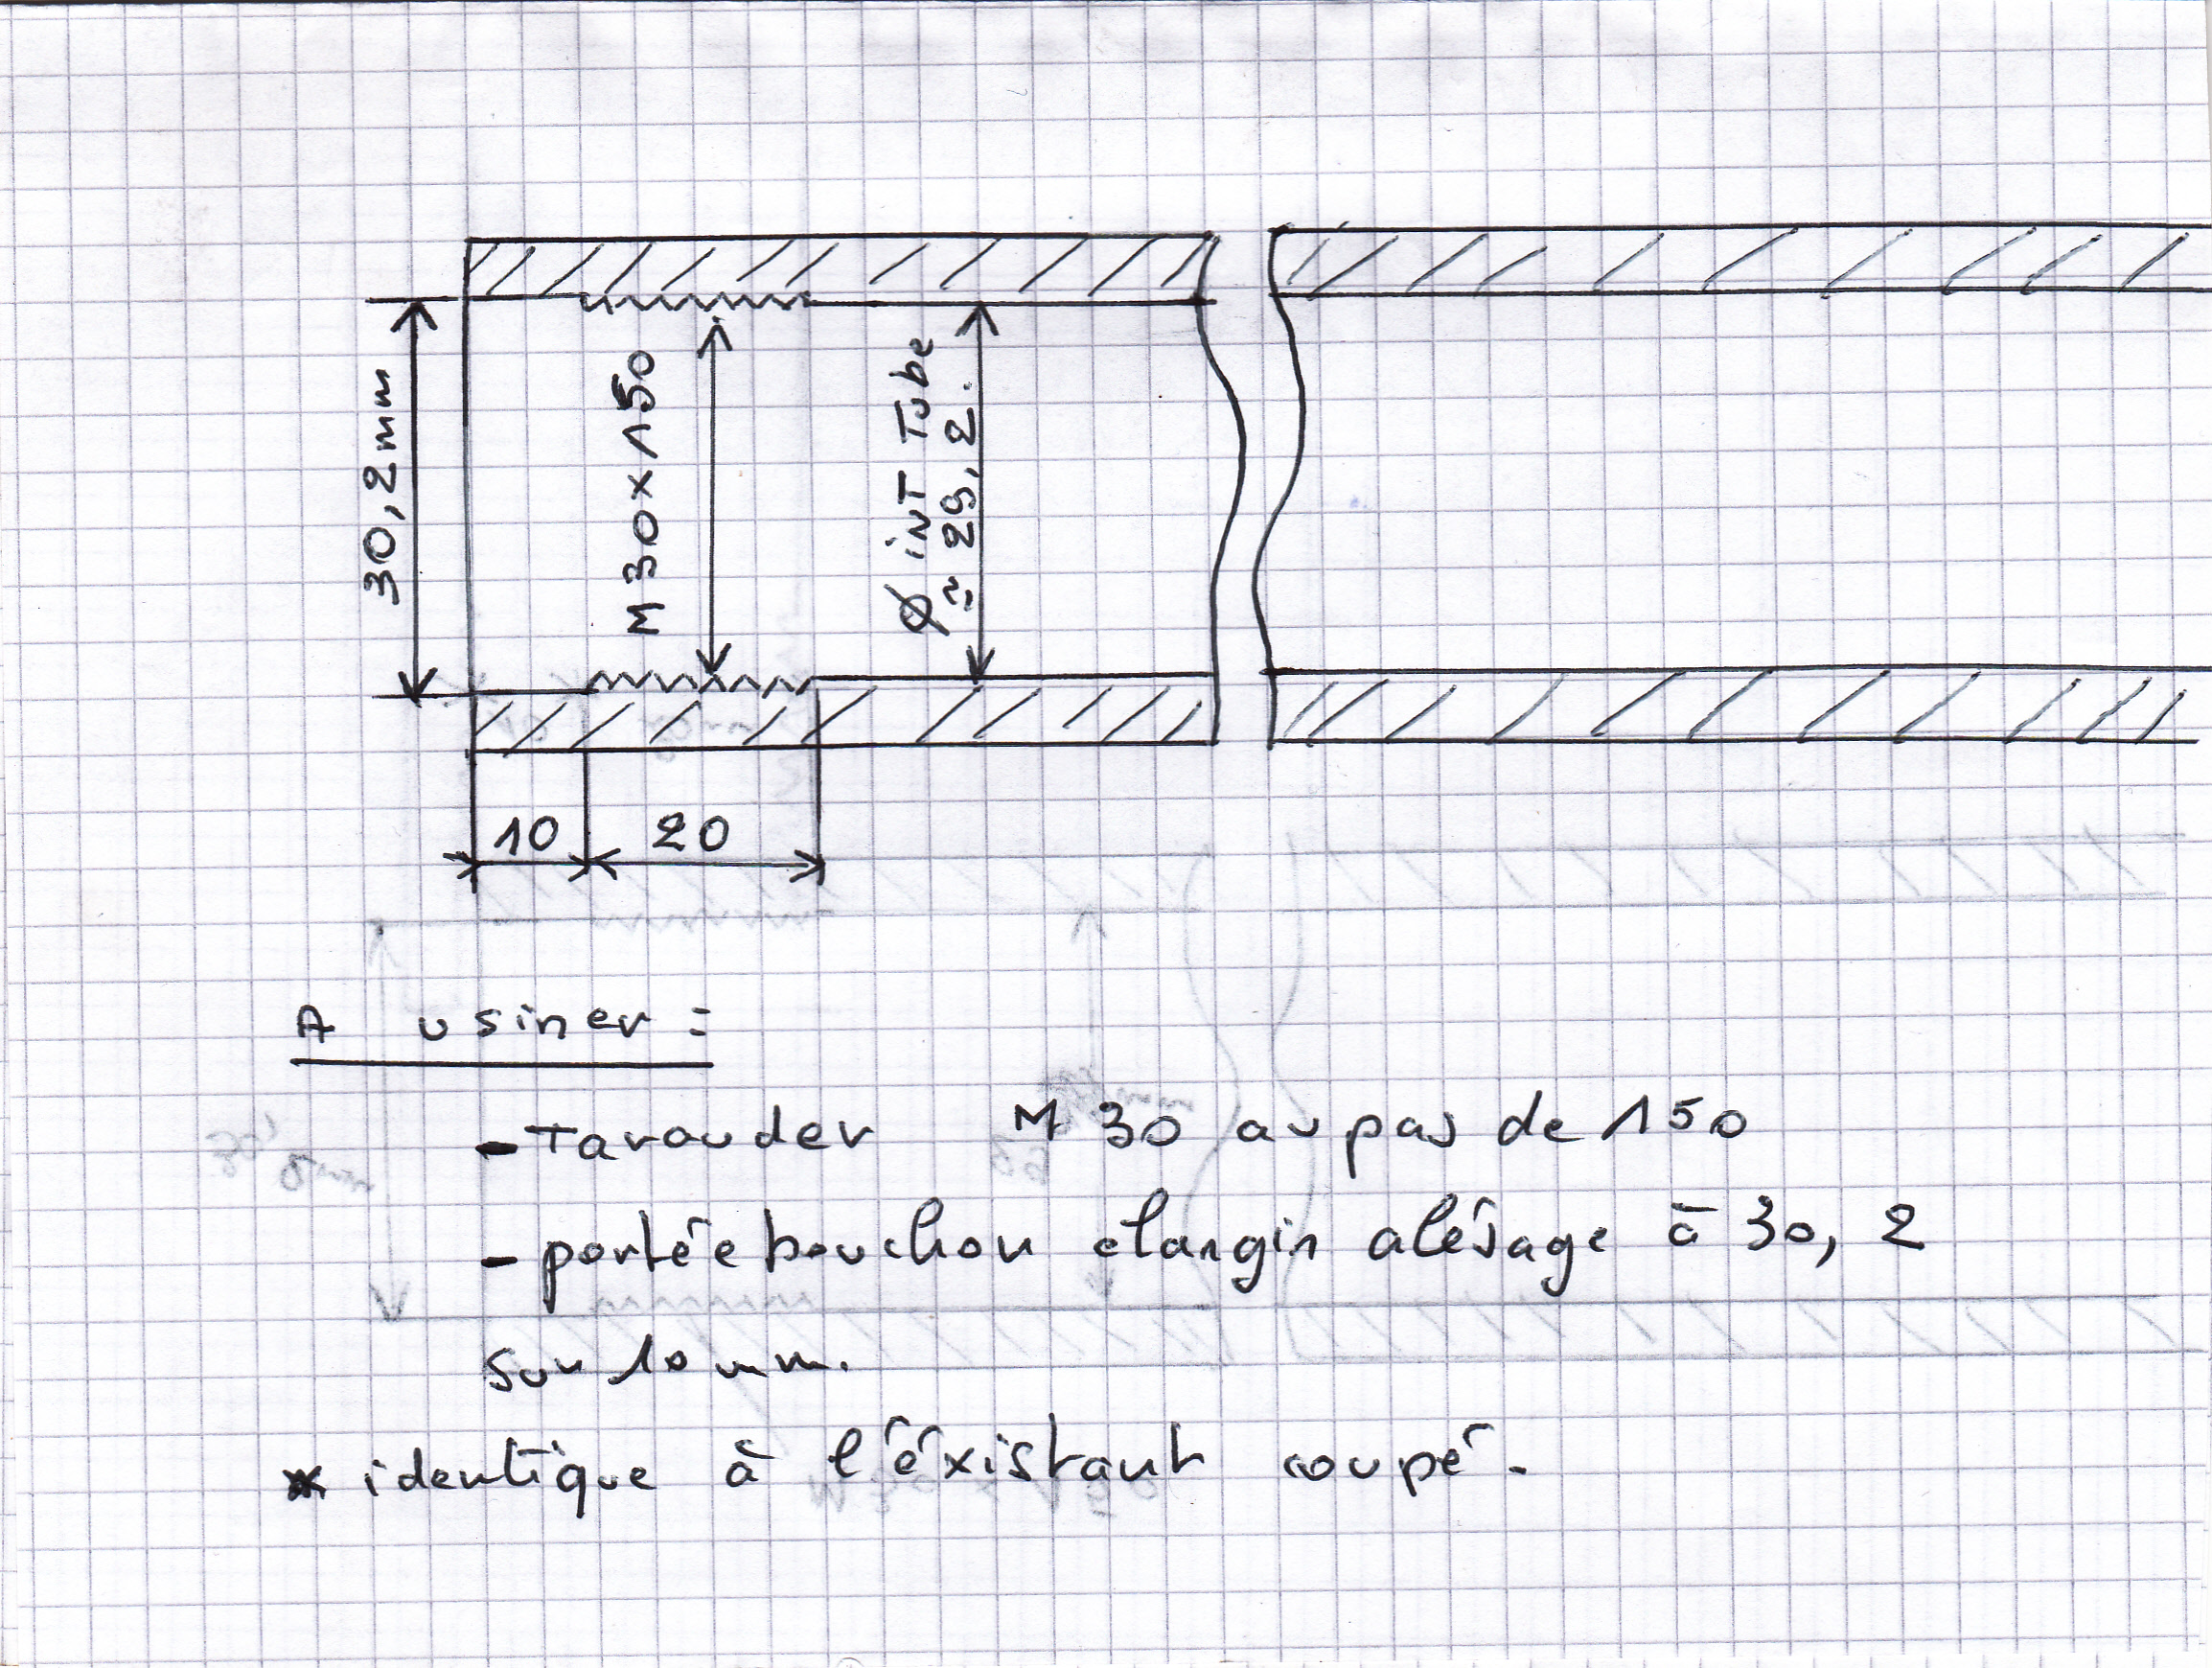 30,2mm
M30x150
Ø inT Tube
≃ 29,2.
10
20
A usiner :
- Tarauder M 30 au pas de 150
- portée bouchon élargir alésage à 30,2
sur 10 mm.
* identique à l'éxistant coupé.